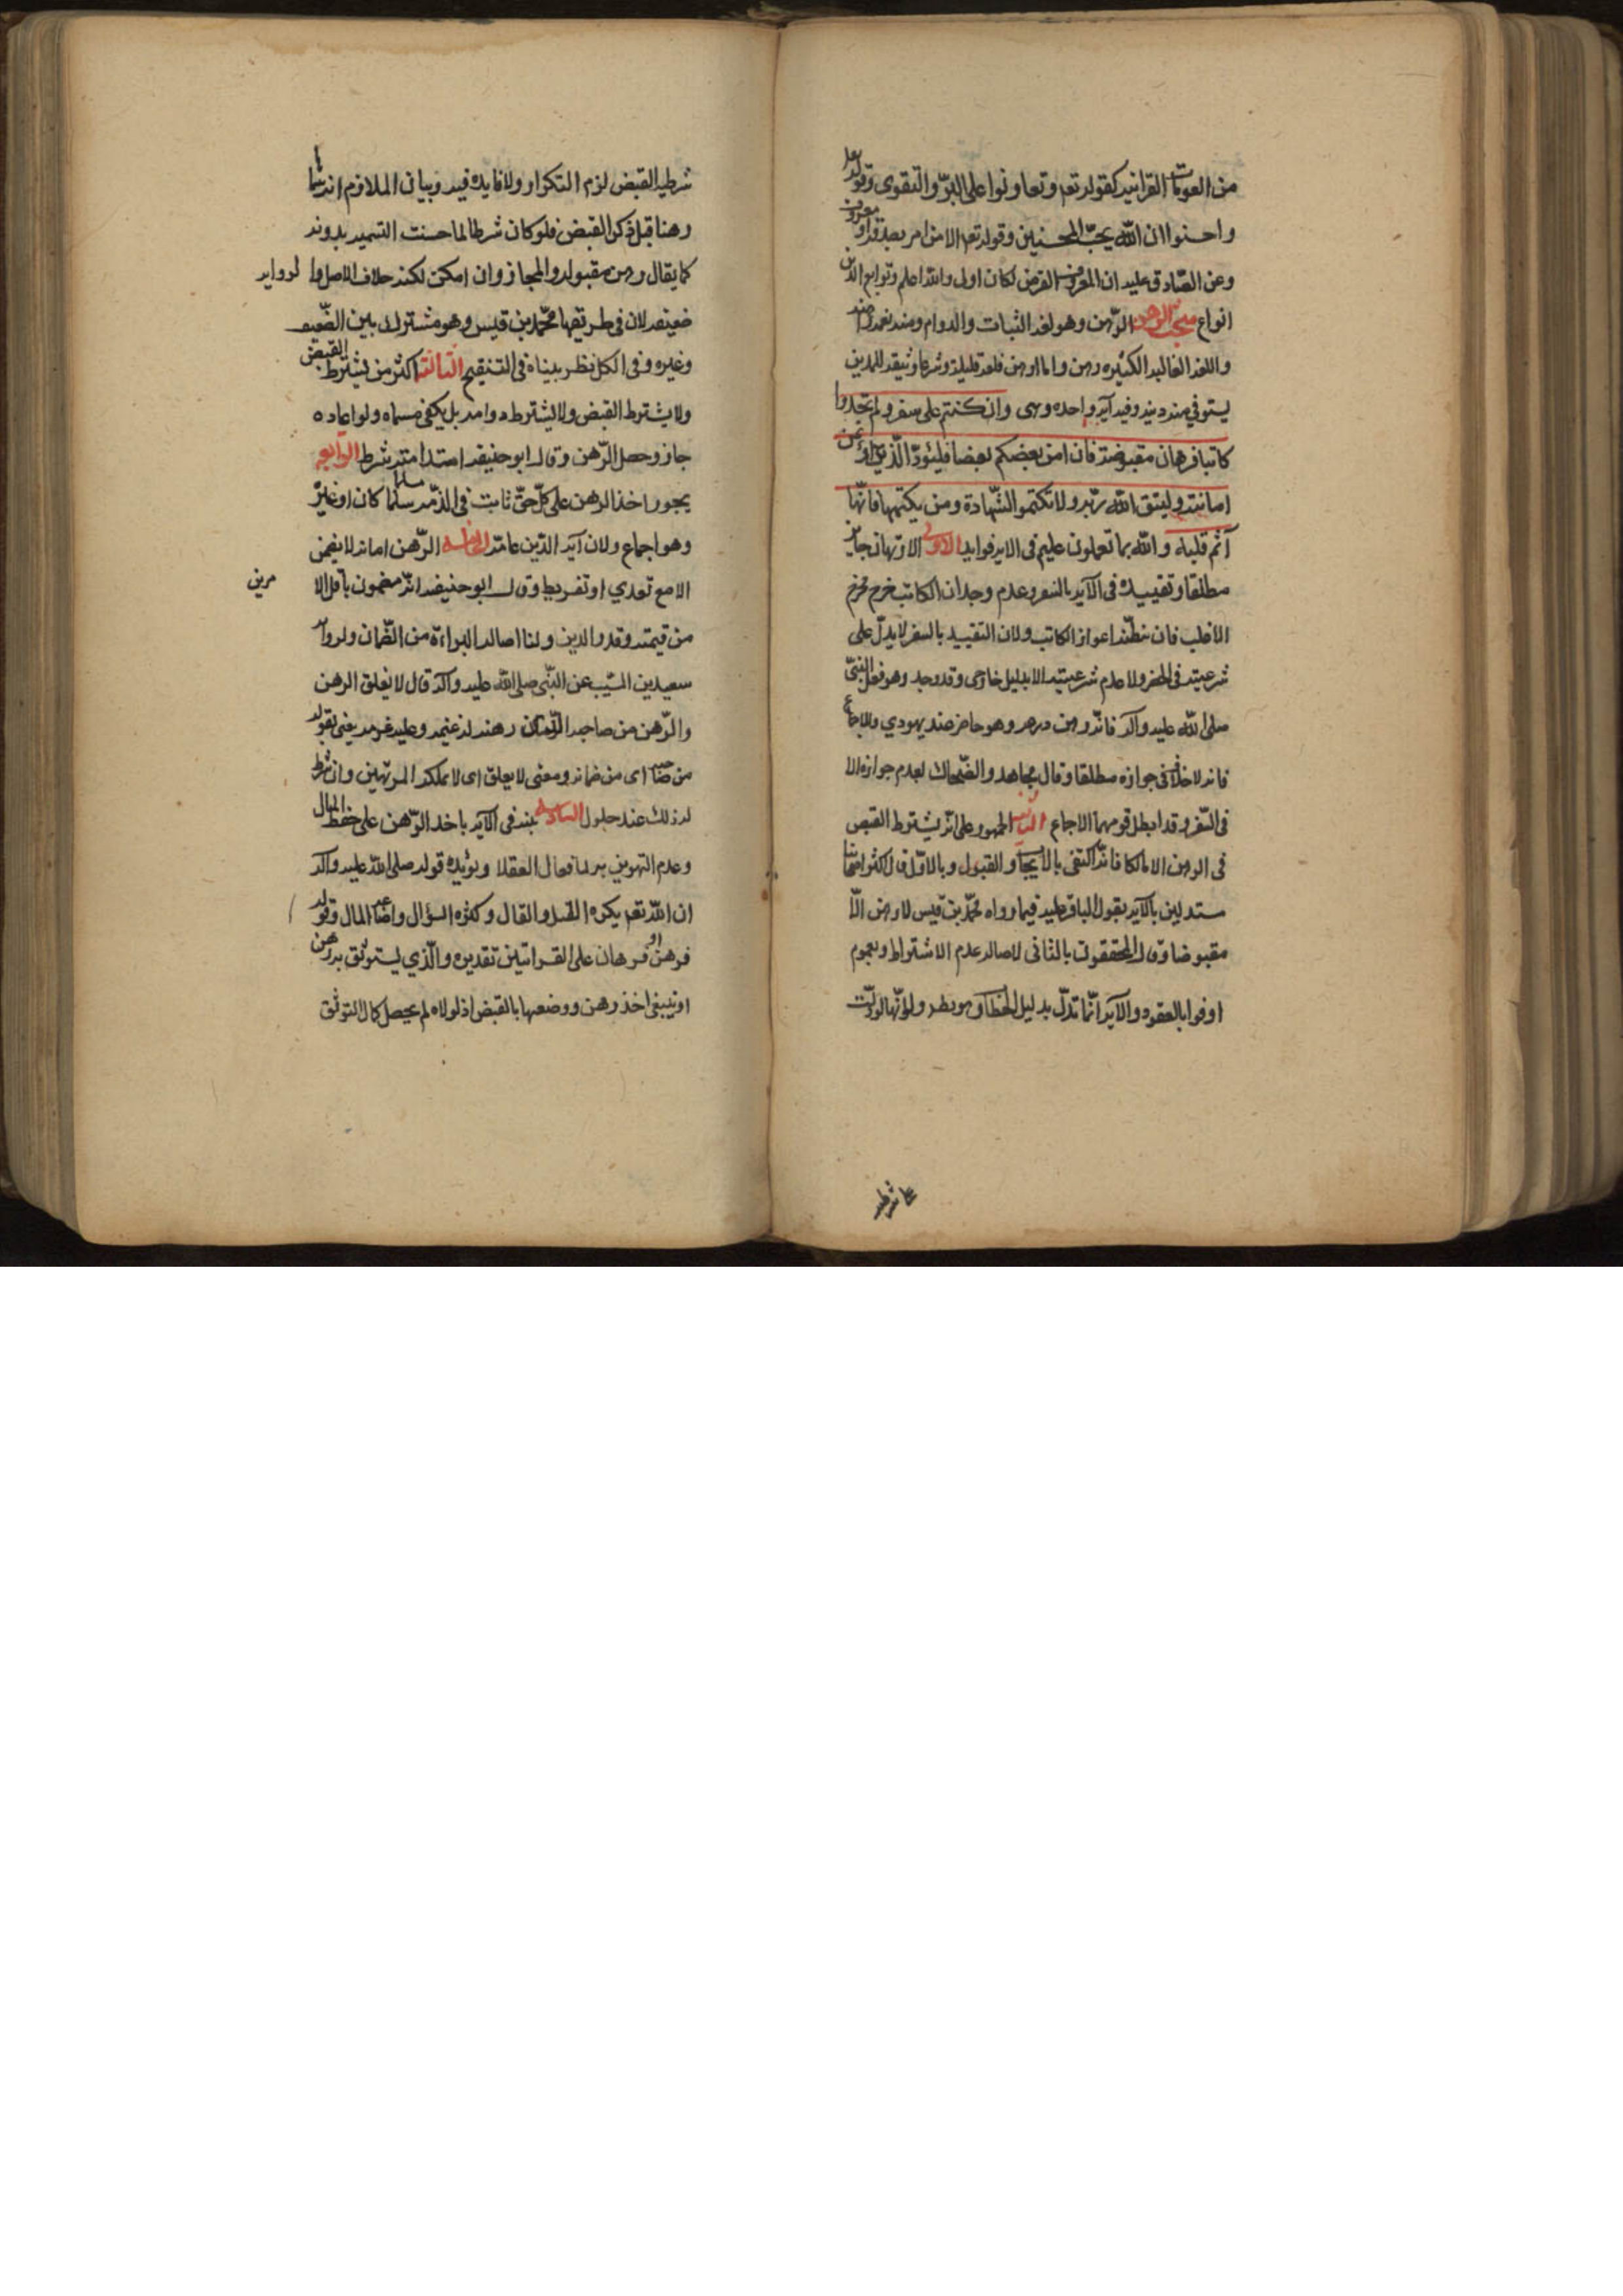 من العمومات القرانیه کقوله تعم وتعاونوا علی البرّ والتقوی وقوله تعا
واحسنوا ان الله یحبّ المحسنین وقوله تعا الا من امر بصدقة او معروف
وعن الصّادق علیه ان المعروف القرض لکان اولی والله اعلم وتوابع الدین
انواع مبحث الرهن الرّهن وهو لغة الثبات والدوام ومنه نعمة راهنه
واللغة الغالبه الکثیره رهن واما ارهن فلغة قلیلة وشرعا وثیقه للمدین
یستوفی منه دینه وفیه آیه واحده وهی وان کنتم علی سفر ولم تجدوا
کاتبا فرهان مقبوضة فان امن بعضکم بعضا فلیؤدّ الّذی اؤتمن
امانته ولیتق الله ربّه ولا تکتموا الشّهادة ومن یکتمها فانّه
آثم قلبه والله بما تعملون علیم فی الایه فواید الاولی الارتهان جایز
مطلقا وتقییده فی الآیه بالسفر وعدم وجدان الکاتب خرج مخرج
الاغلب فان مظنّة اعواز الکاتب ولان التقیید بالسفر لا یدلّ علی
شرعیته فی الحضر ولا عدم شرعیته الا بدلیل خارجی وقد وجد وهو فعل النبیّ
صلی الله علیه وآله فانّه رهن درعه وهو حاضر عند یهودی والاجماع
فانه لا خلاف فی جوازه مطلقا وقال مجاهد والضّحاک بعدم جوازه الا
فی السّفر وقد ابطل قولهما الاجماع الثانیه الجمهور علی انّه یشترط القبض
فی الرهن الا مالکا فانّه اکتفی بالایجاب والقبول وبالاوّل قال اکثر اصحابنا
مستدلین بالآیه بقول الباقر علیه فیما رواه محمّد بن قیس لا رهن الّا
مقبوضا وقال المحققون بالثانی لاصالة عدم الاشتراط وبعموم
اوفوا بالعقود والآیه انّما تدلّ بدلیل الخطاب وهو بطر ولانّها لو دلّت
علی شرطیه
شرطیه القبض لزم التکرار ولا فایده فیه وبیان الملازم انه سمّا
رهنا قبل ذکر القبض فلو کان شرطا لما حسنت التسمیه بدونه
کما یقال رهن مقبوله والمجاز وان امکن لکنه خلاف الاصل والروایه
ضعیفه لان فی طریقها محمّد بن قیس وهو مشترک بین الضّعیف
وغیره وفی الکل نظر بیناه فی التنقیح الثالثة اکثر من یشترط القبض
ولا یشترط القبض ولا یشترط دوامه بل یکفی مسماه ولو اعاده
جاز وحصل الرّهن وقال ابو حنیفه استدامته شرط الرابعه
یجوز اخذ الرهن علی کلّ حقّ ثابت فی الذمّه سلما کان او غیره
وهو اجماع ولان آیه الدّین عامّة الخامسه الرّهن امانه لا یضمن
الا مع تعدی او تفریط وقال ابو حنیفه انّه مضمون باقل الامرین
من قیمته وقدر الدین ولنا اصالة البراءة من الضّمان ولروایه
سعید بن المسیّب عن النّبی صلی الله علیه وآله قال لا یغلق الرهن
والرّهن من صاحبه الّذی رهنه له غنمه وعلیه غرمه یعنی بقوله
من صاحبه ای من ضمانه ومعنی لا یغلق ای لا یملکه المرتهن وان شرط
له ذلک عند حلول السادسه نبّه فی الآیه باخذ الرّهن علی حفظ المال
وعدم التهوین به لما فعال العقلا ویؤیده قوله صلی الله علیه وآله
ان الله تعم یکره القیل والقال وکثره السؤال واضاعه المال وقوله
فرهن او فرهان علی القراتین تقدیره والّذی یستوثق به رهن
او ینبغی اخذ رهن ووضعها بالقبض اذ لولاه لم یحصل کمال التوثق